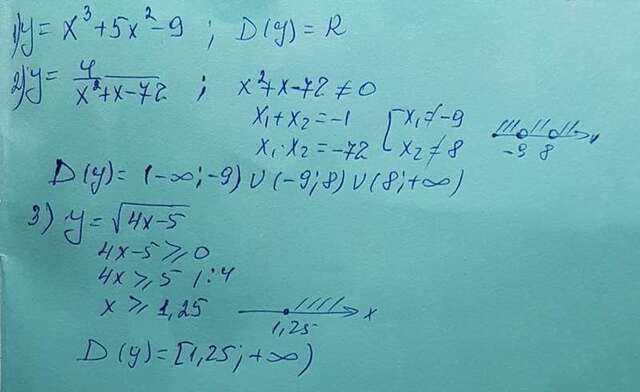 1) y = x³ + 5x² - 9 ; D(y) = R
2) y = 4 / (x² + x - 72) ; x² + x - 72 ≠ 0
x₁ + x₂ = -1 [ x₁ ≠ -9
x₁ · x₂ = -72 [ x₂ ≠ 8
-9 8 x
D(y) = (-∞; -9) ∪ (-9; 8) ∪ (8; +∞)
3) y = √(4x-5)
4x - 5 ≥ 0
4x ≥ 5 | : 4
x ≥ 1,25
1,25 x
D(y) = [1,25; +∞)